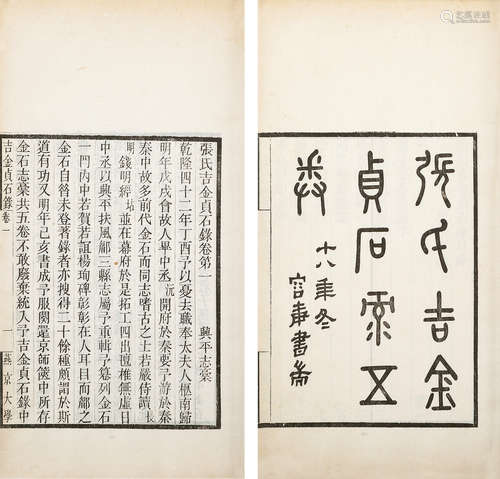 張氏吉金
貞石录五
卷
十八年冬
容庚書耑
張氏吉金貞石錄卷第一 興平志稾
乾隆四十二年丁酉予以憂去職奉太夫人柩南歸
明年戊戌會故人畢中丞沅開府於秦要予游於秦
秦中故多前代金石而同志嗜古之士若嚴侍讀長
明錢明經坫並在幕府於是拓工四出氊椎無虛日
中丞以興平扶風郿三縣志屬予重輯予纂列金石
一門內中若賀若誼楊珣碑彰彰在人耳目而郿之
金石自昝未登著錄者亦搜得二十餘種頗謂於斯
道有功又明年己亥書成予服闋還京師篋中所存
金石志稾共五卷不敢廢棄統入予吉金貞石錄中
吉金貞石錄卷一 一 燕京大學